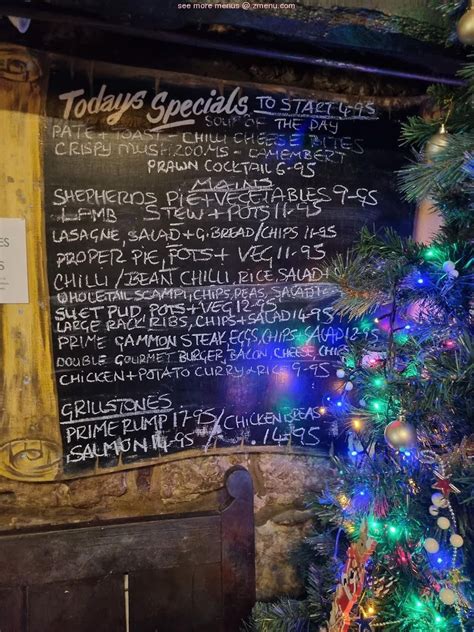 see more menus @ zmenu.com
Todays Specials TO START 4-95
SOUP OF THE DAY
PATE + TOAST - CHILLI CHEESE BITES
CRISPY MUSHROOMS - CAMEMBERT
PRAWN COCKTAIL 6-95
MAINS
SHEPHERDS PIE + VEGETABLES 9-95
LAMB STEW + POTS 11-95
LASAGNE, SALAD + G. BREAD/CHIPS 11-95
PROPER PIE, POTS + VEG 11-95
CHILLI/BEAN CHILLI, RICE, SALAD +
WHOLETAIL SCAMPI, CHIPS, PEAS, SALAD +
SUET PUD, POTS + VEG 12-95
LARGE RACK RIBS, CHIPS + SALAD 14-95
PRIME GAMMON STEAK, EGGS, CHIPS + SALAD 12-95
DOUBLE GOURMET BURGER, BACON, CHEESE, CHIPS
CHICKEN + POTATO CURRY + RICE 9-95
GRILLSTONES
PRIME RUMP 17-95 / CHICKEN BREAS
SALMON 14-95 14-95